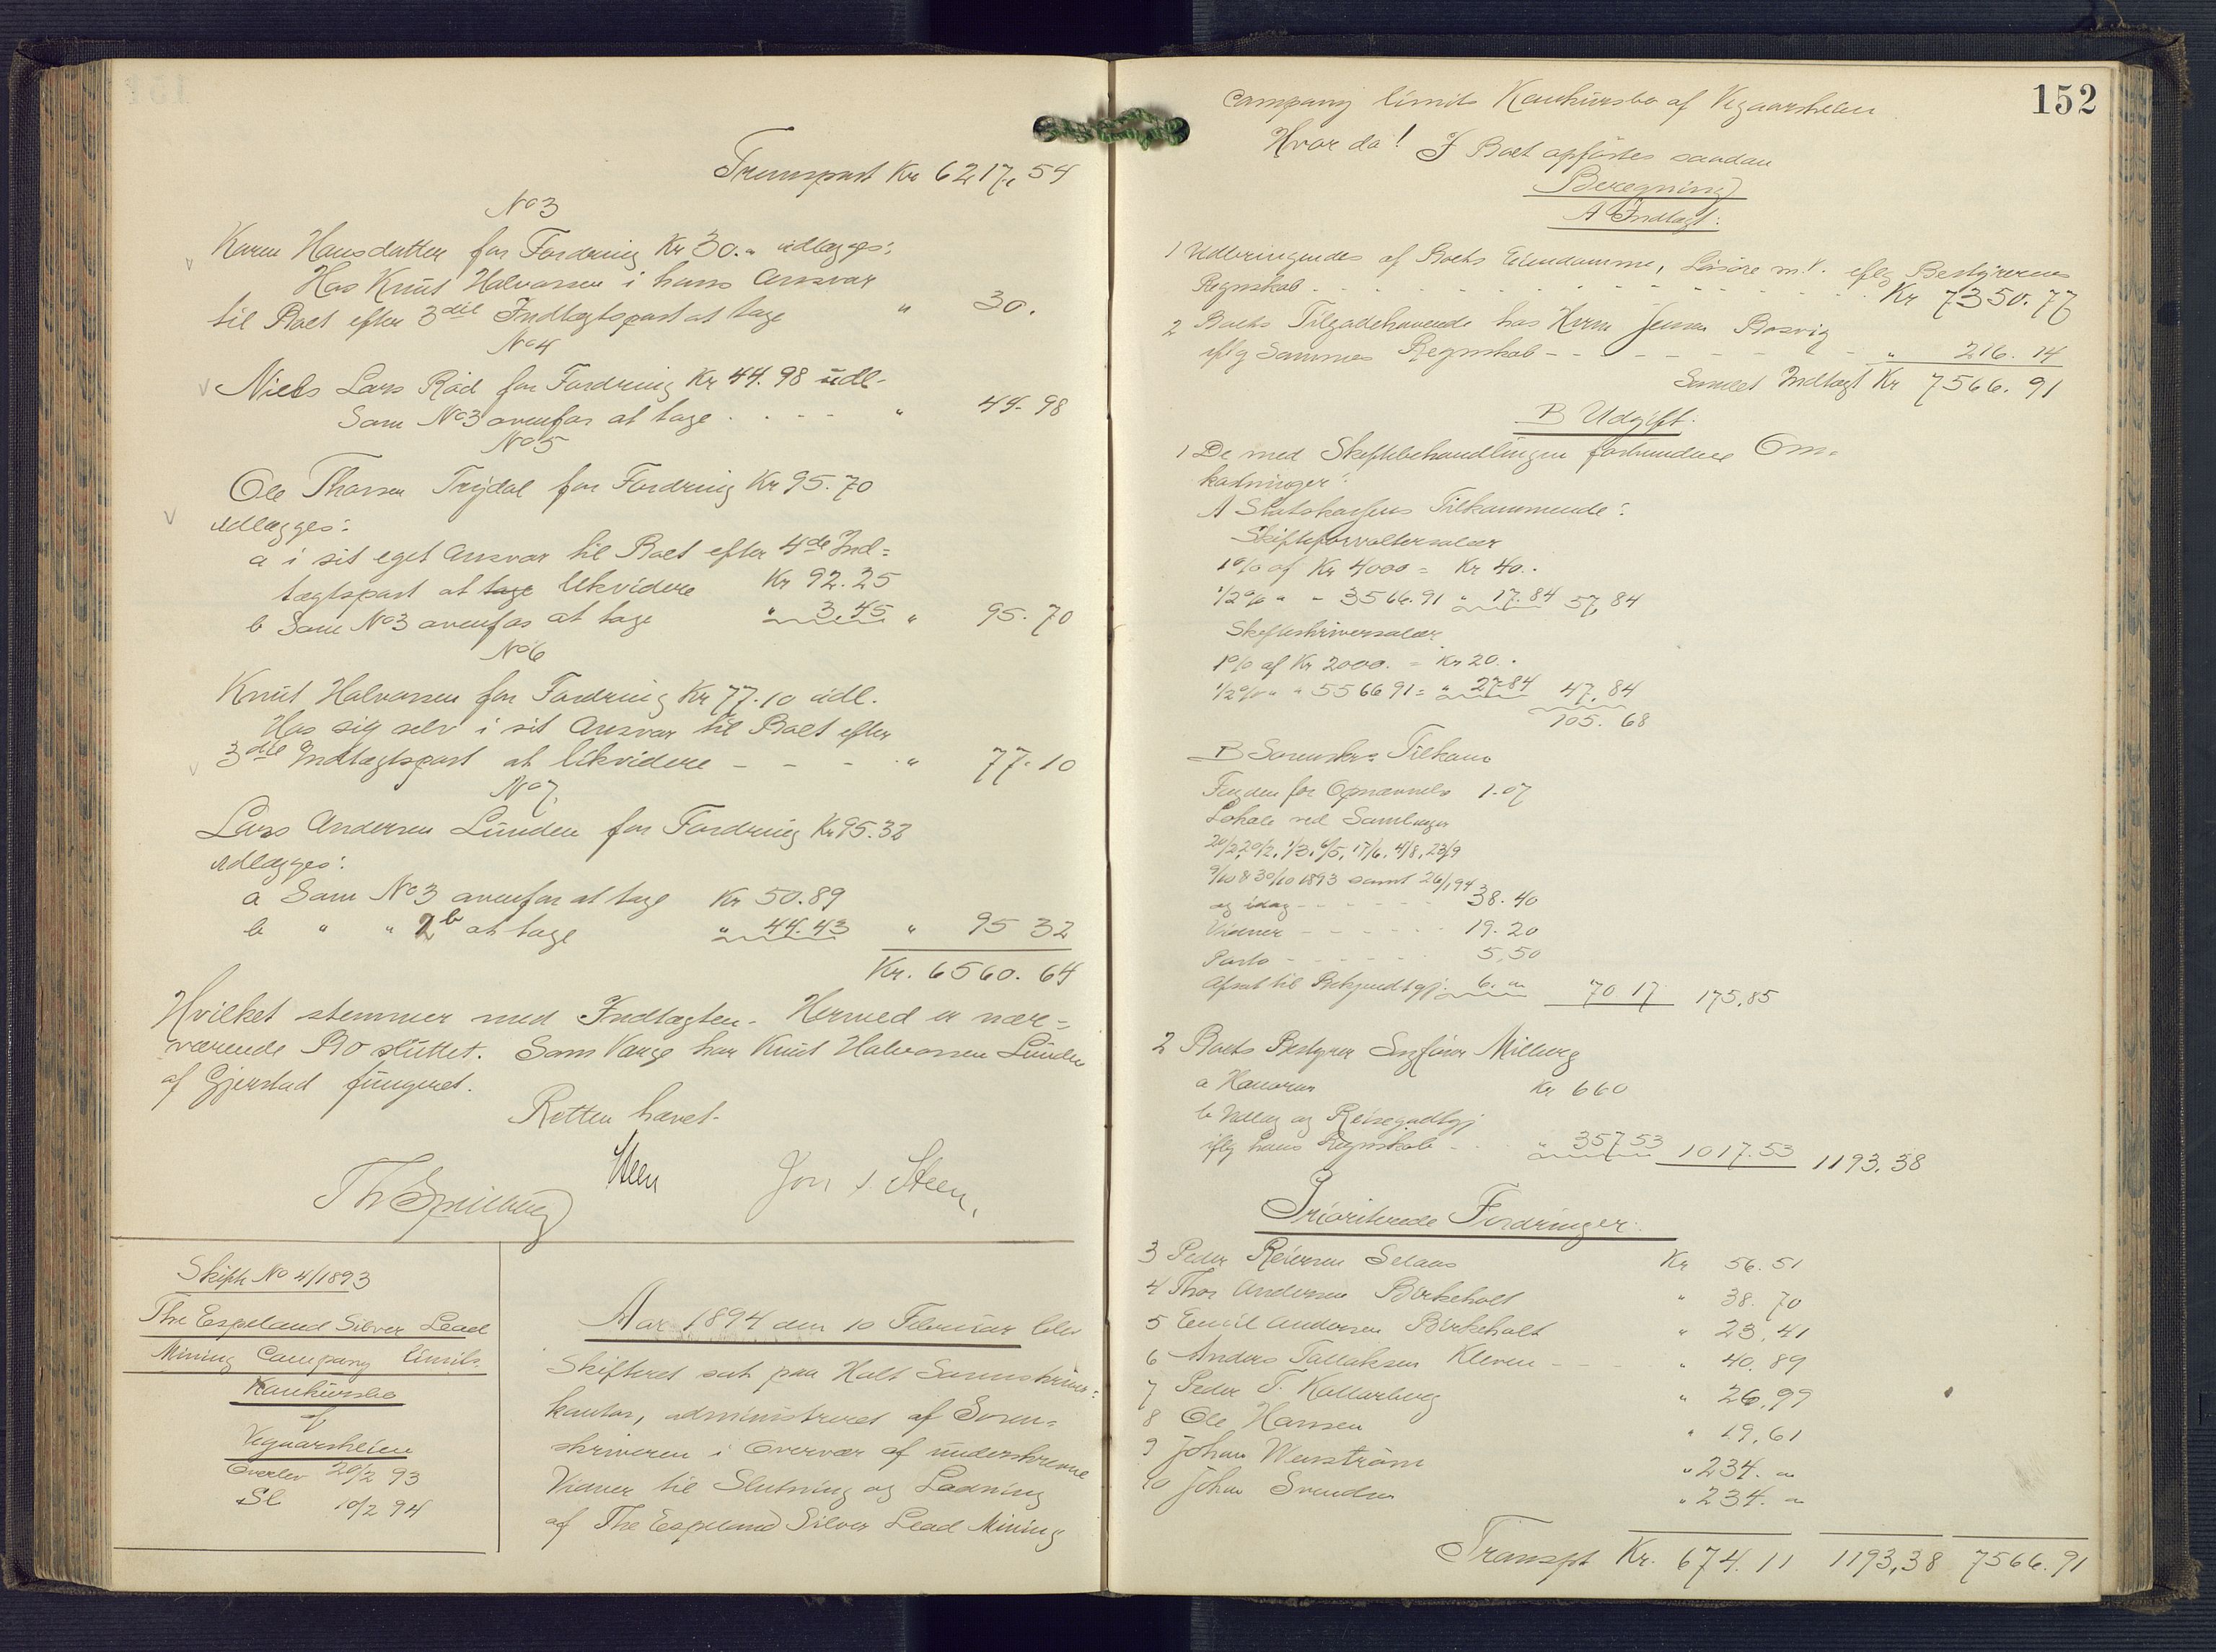 Transport Kr 6217,54
No 3
Karen Hansdatter for Fordring Kr 30.- udlægges:
Hos Knut Halvorsen i hans Ansvar
til Boet efter 3die Indtægtspost at tage " 30.
No 4
Niels Lars Röd for Fordring Kr 44.98 udl.
Som No 3 ovenfor at tage . . - - " 44.98
No 5
Ole Thorsen Trydal for Fordring Kr 95.70
udlægges:
a i sit eget Ansvar til Boet efter 4de Ind=
tægtspost at tage likvidere Kr 92.25
b Som No 3 ovenfor at tage " 3.45 " 95.70
No 6
Knut Halvorsen for Fordring Kr 77.10 udl.
Hos sig selv i sit Ansvar til Boet efter
3die Indtægtspost at likvidere - - - " 77.10
No 7
Lars Andersen Lunden for Fordring Kr 95.32
udlægges:
a Som No 3 ovenfor at tage Kr 50.89
b " " 2b at tage " 44.43 " 95 32
Kr. 6560.64
Hvilket stemmer med Indtægten. Hermed er nær=
værende Bo sluttet. Som Værge har Knut Halvorsen Lunden
af Gjerstad fungeret.
Retten hævet.
Steen Jon J. Steen,
Skifte No 4/1893
The Espeland Silver Lead
Mining Company limits
Konkursbo
af
Vegaarsheien
Overlev 20/2 93
Sl 10/2 94
Aar 1894 den 10 Februar blev
Skifteret sat paa Holt Sorenskriver=
kontor, administreret af Soren=
skriveren i Overvær af underskrevne
Vidner til Slutning og Lodning
af The Espeland Silver Lead Mining
152
Company limits Konkursbo af Vegaarsheien
Hvor da! I Boet opförtes saadan
Beregning
A Indtægt:
1 Udbringendes af Boets Eiendomme, Lösöre m.V. iflg Bestyrerens
Regnskab . . . Kr 7350.77
2 Boets Tilgodehavende hos Herm Jensen Bosvig
iflg Sammes Regnskab - - - " 216.14
Samlet Indtægt Kr 7566.91
B Udgift.
1 De med Skiftebehandlingen forbundne Om=
kostninger:
A Statskassens Tilkommende:
Skifteforvaltersalær
1% af Kr 4000 = Kr 40..
1/2% " " 3566.91 " 17.84 57,84
Skifteskriversalær
1% af Kr 2000. = Kr 20..
1/2% " " 5566 91 = " 27.84 47,84
105.68
B Sorenskr: Tilkom
for Opnævnelse 1.07
Lokale ved Samlinger
20/2, 20/2, 1/3, 6/5, 17/6, 4/8, 23/9
9/10 & 30/10 1893 samt 26/1 94
og idag - - - 38.40
Vidner - - - 19.20
Porto - - - 5,50
Afsat til 6. " 70 17 175,85
2 Boets Bestyrer Sagförer Milberg
a Honorar Kr 660
b Udlæg og Reisegodtgj
iflg hans Regnskab - " 357.53 1017.53 1193,38
Prioriterede Fordringer:
3 Peder Reiersen Selaas Kr 56.51
4 Thor Andersen Birkeholt " 38.70
5 Emil Andersen Birkeholt " 23,41
6 Anders Tallaksen Kleven - - " 40,89
7 Peder T. Kallarberg " 26,99
8 Ole Hansen " 19,61
9 Johan Wenström " 234. "
10 Johan Svendsen " 234. "
Transpt Kr. 674.11 1193,38 7566.91